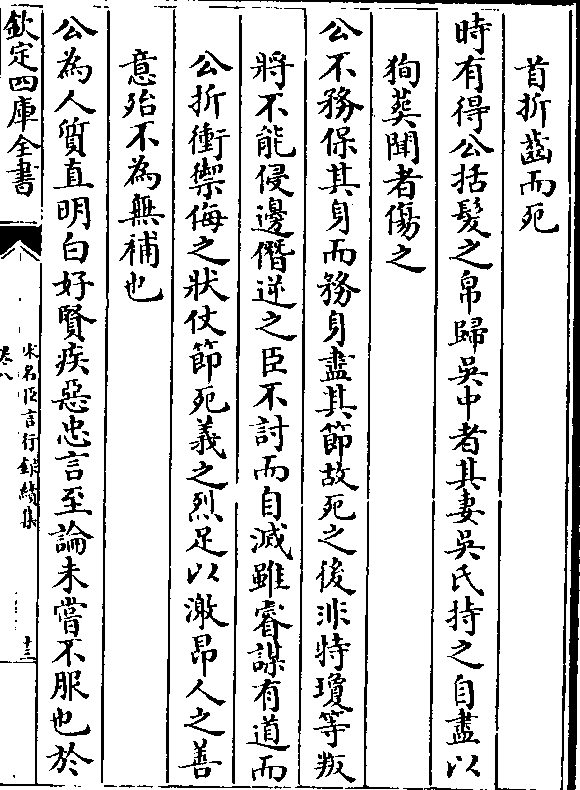 首折齒而死
時有得公括髮之帛歸吳中者其妻吳氏持之自盡以
狥葬聞者傷之
公不務保其身而務身盡其節故死之後非特瓊等叛
將不能侵邊僭逆之臣不討而自滅雖睿謀有道而
公折衝禦侮之狀仗節死義之烈足以激昂人之善
意殆不為無補也
公為人質直明白好賢疾惡忠言至論未嘗不服也於
欽定四庫全書
宋名臣言行錄續集
卷八
十三